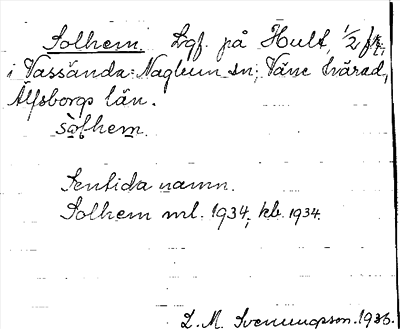 Solhem. Lgf. på Hult, 1/2 fkr,
i Vassända-Naglum sn; Väne härad,
Älfsborgs län.
sòlhem.
Sentida namn.
Solhem ml. 1934; kb. 1934.
L. M. Svenungsson. 1935.